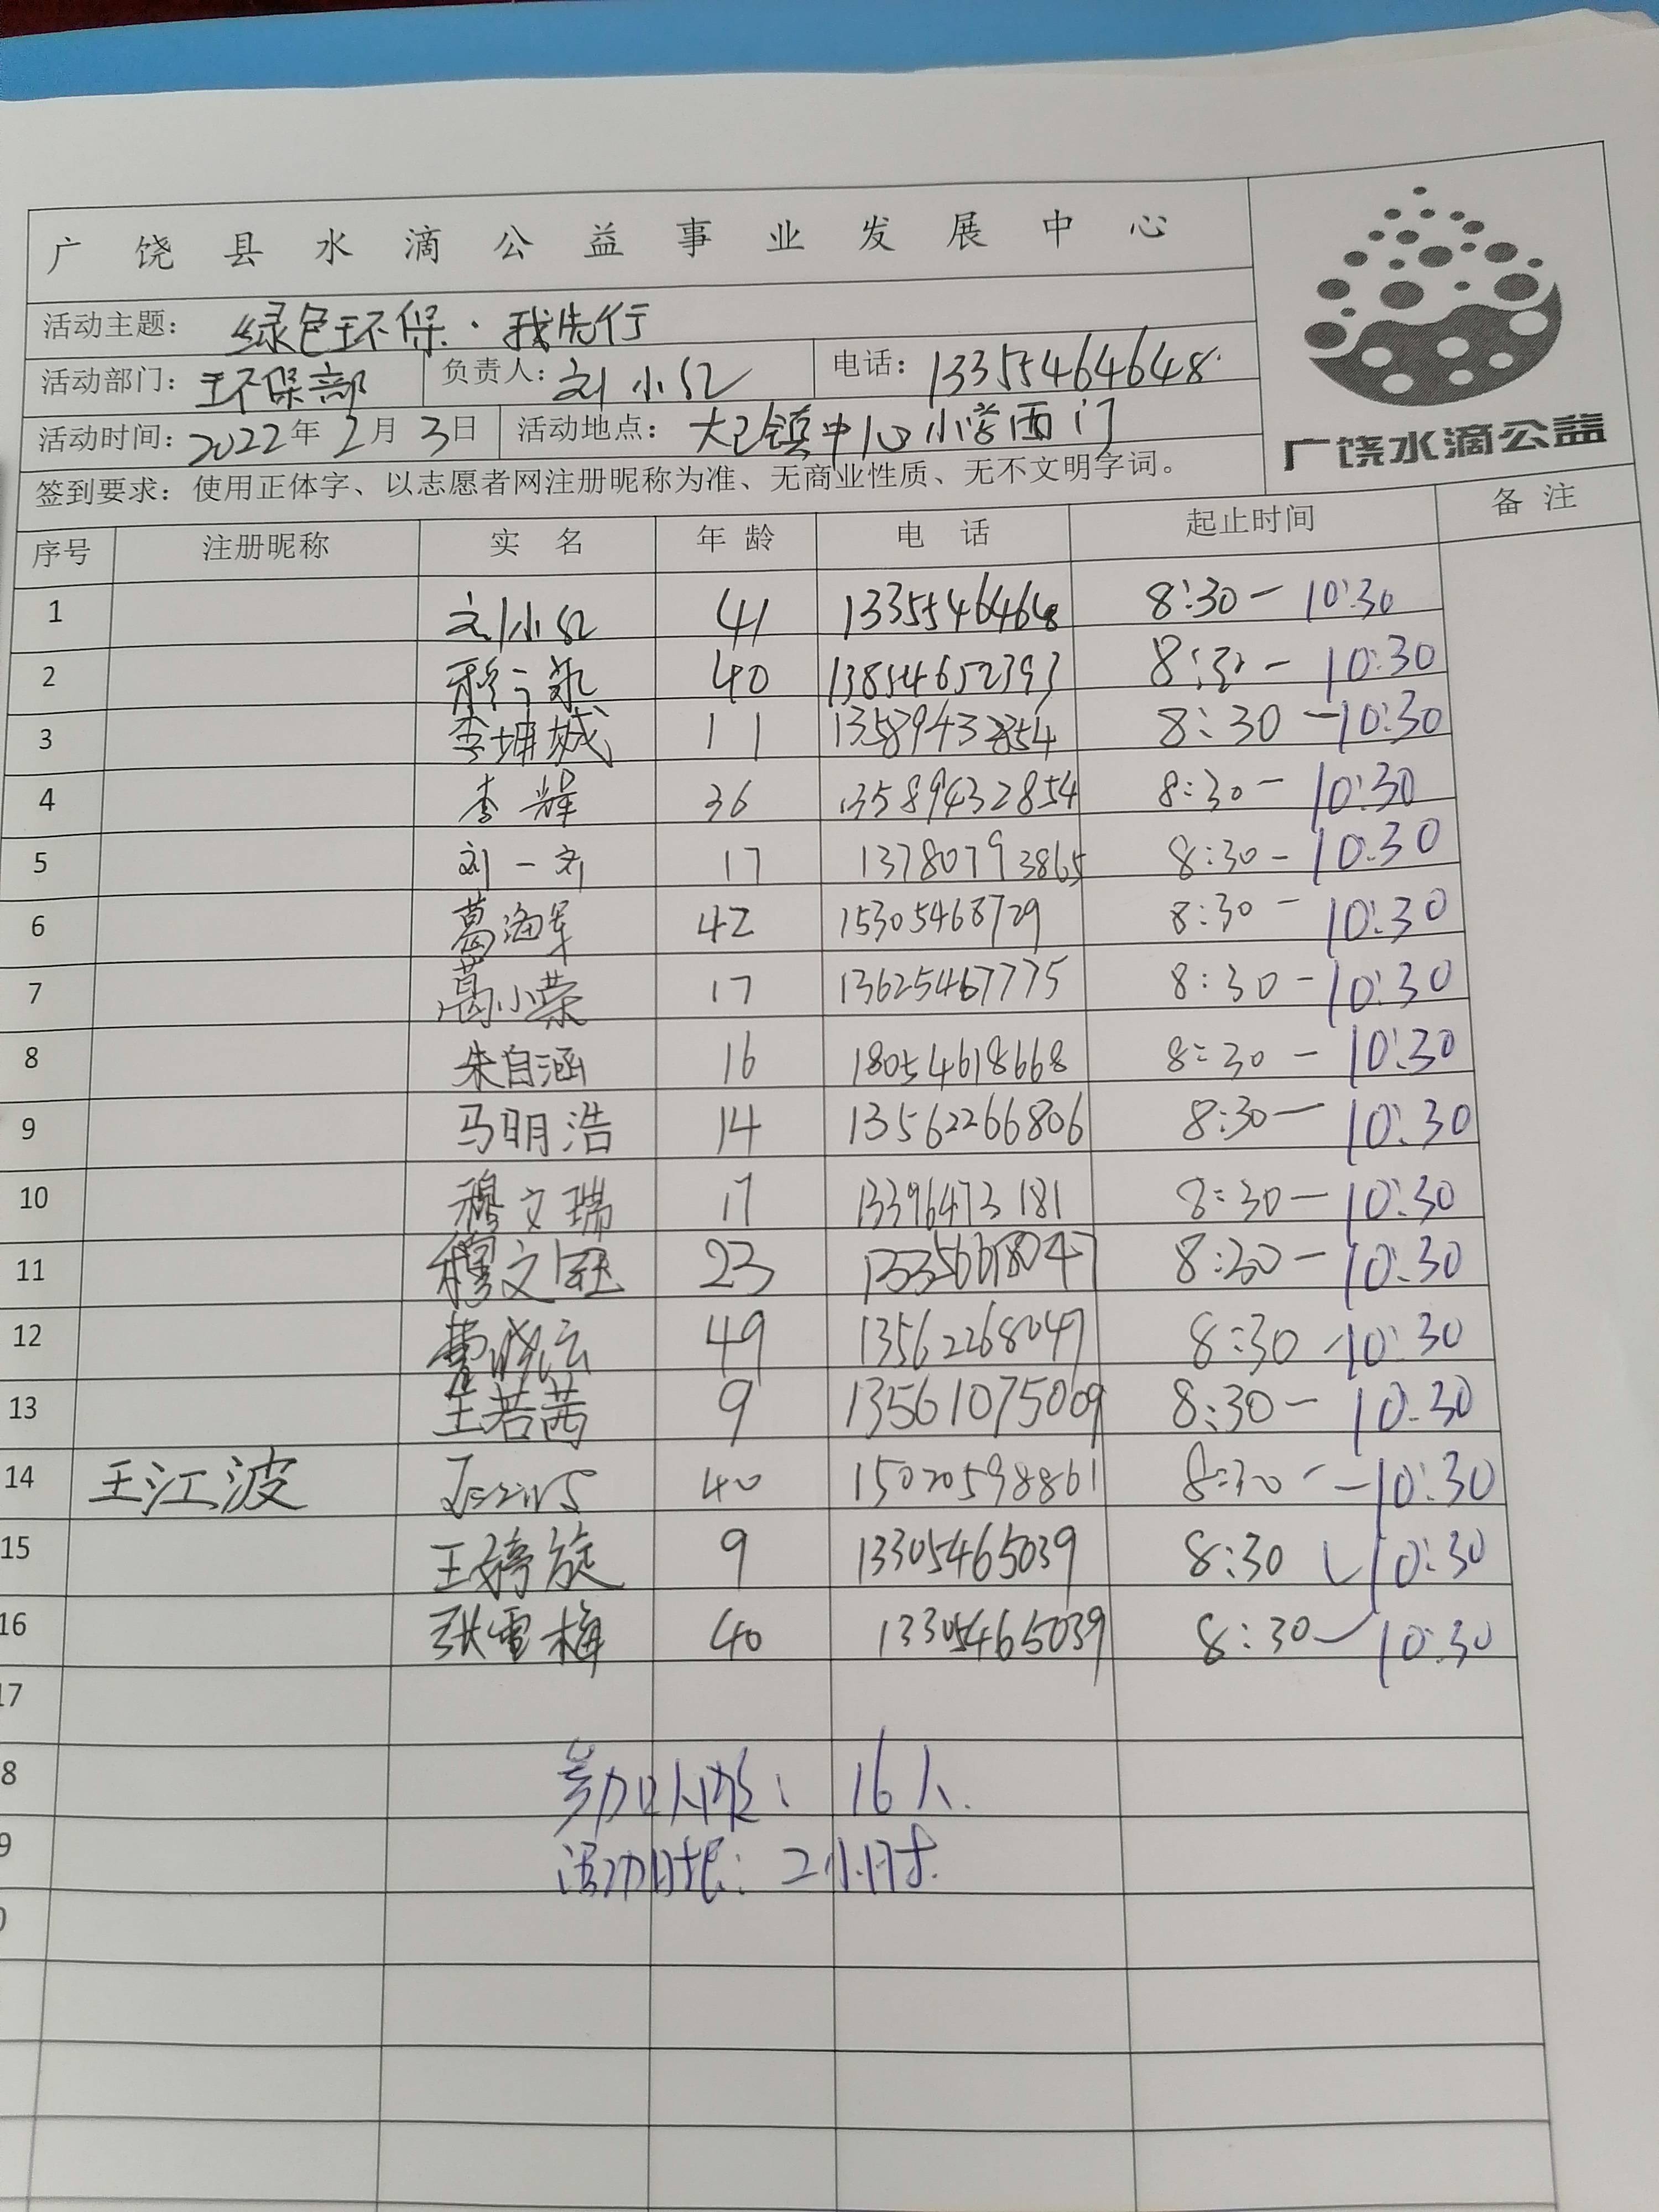 广饶县水滴公益事业发展中心
活动主题： 绿色环保·我先行
活动部门：环保部 负责人：刘小红 电话：13355464648
活动时间：2022年2月3日 活动地点：大王镇中心小学西门
广饶水滴公益
签到要求：使用正体字、以志愿者网注册昵称为准、无商业性质、无不文明字词。
序号 注册昵称 实名 年龄 电话 起止时间 备注
1 刘小红 41 1335546468 8:30-10:30
2 40 13854652393 8:30-10:30
3 李埔城 11 13589432854 8:30-10:30
4 李辉 36 13589432854 8:30-10:30
5 刘一刘 17 13780793865 8:30-10:30
6 葛海军 42 15305468729 8:30-10:30
7 葛小荣 17 13625467775 8:30-10:30
8 朱自涵 16 18054618668 8:30-10:30
9 马明浩 14 13562266806 8:30-10:30
10 穆文瑞 17 13396473181 8:30-10:30
11 穆文 23 8:30-10:30
12 49 13562268047 8:30-10:30
13 王若茜 9 13561075009 8:30-10:30
14 王江波 40 15020598861 8:30-10:30
15 王婷旋 9 13305465039 8:30-10:30
16 张雪梅 40 13305465039 8:30-10:30
17
8 参加人次：16人.
9 活动时长：2小时.